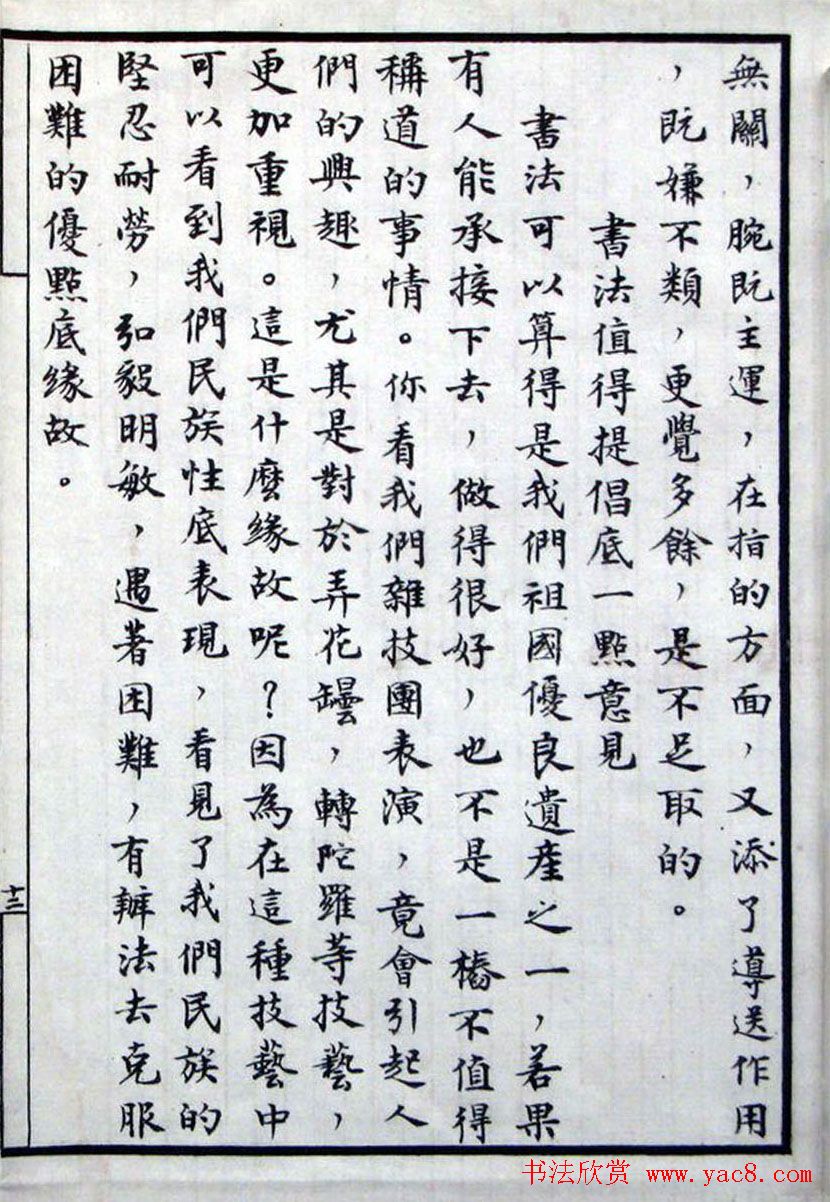 無關，腕既主運，在指的方面，又添了導送作用
，既嫌不類，更覺多餘，是不足取的。
書法值得提倡底一點意見
書法可以算得是我們祖國優良遺產之一，若果
有人能承接下去，做得很好，也不是一樁不值得
稱道的事情。你看我們雜技團表演，竟會引起人
們的興趣，尤其是對於弄花罎，轉陀羅等技藝，
更加重視。這是什麼緣故呢？因為在這種技藝中
可以看到我們民族性底表現，看見了我們民族的
堅忍耐勞，弘毅明敏，遇著困難，有辦法去克服
困難的優點底緣故。
十二
书法欣赏 www.yac8.com